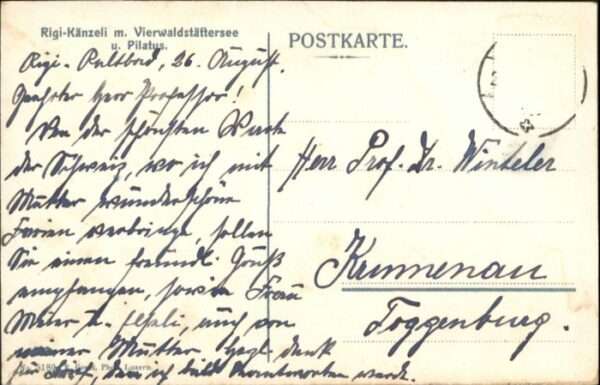 Rigi-Känzeli m. Vierwaldstättersee
u. Pilatus.
POSTKARTE.
Rigi-Kaltbad, 26. August.
Geehrter Herr Professor!
Von der schönsten Warte
der Schweiz, wo ich mit
Mutter wunderschöne
Ferien verbringe, sollen
Sie einen freundl. Gruß
empfangen, sowie Frau
Meier u. auch von
meiner Mutter. Hzgl. Dank
für Brief, den ich bald beantworten werde.
Herr Prof. Dr. Winteler
Krummenau
Toggenburg.
Luzern.